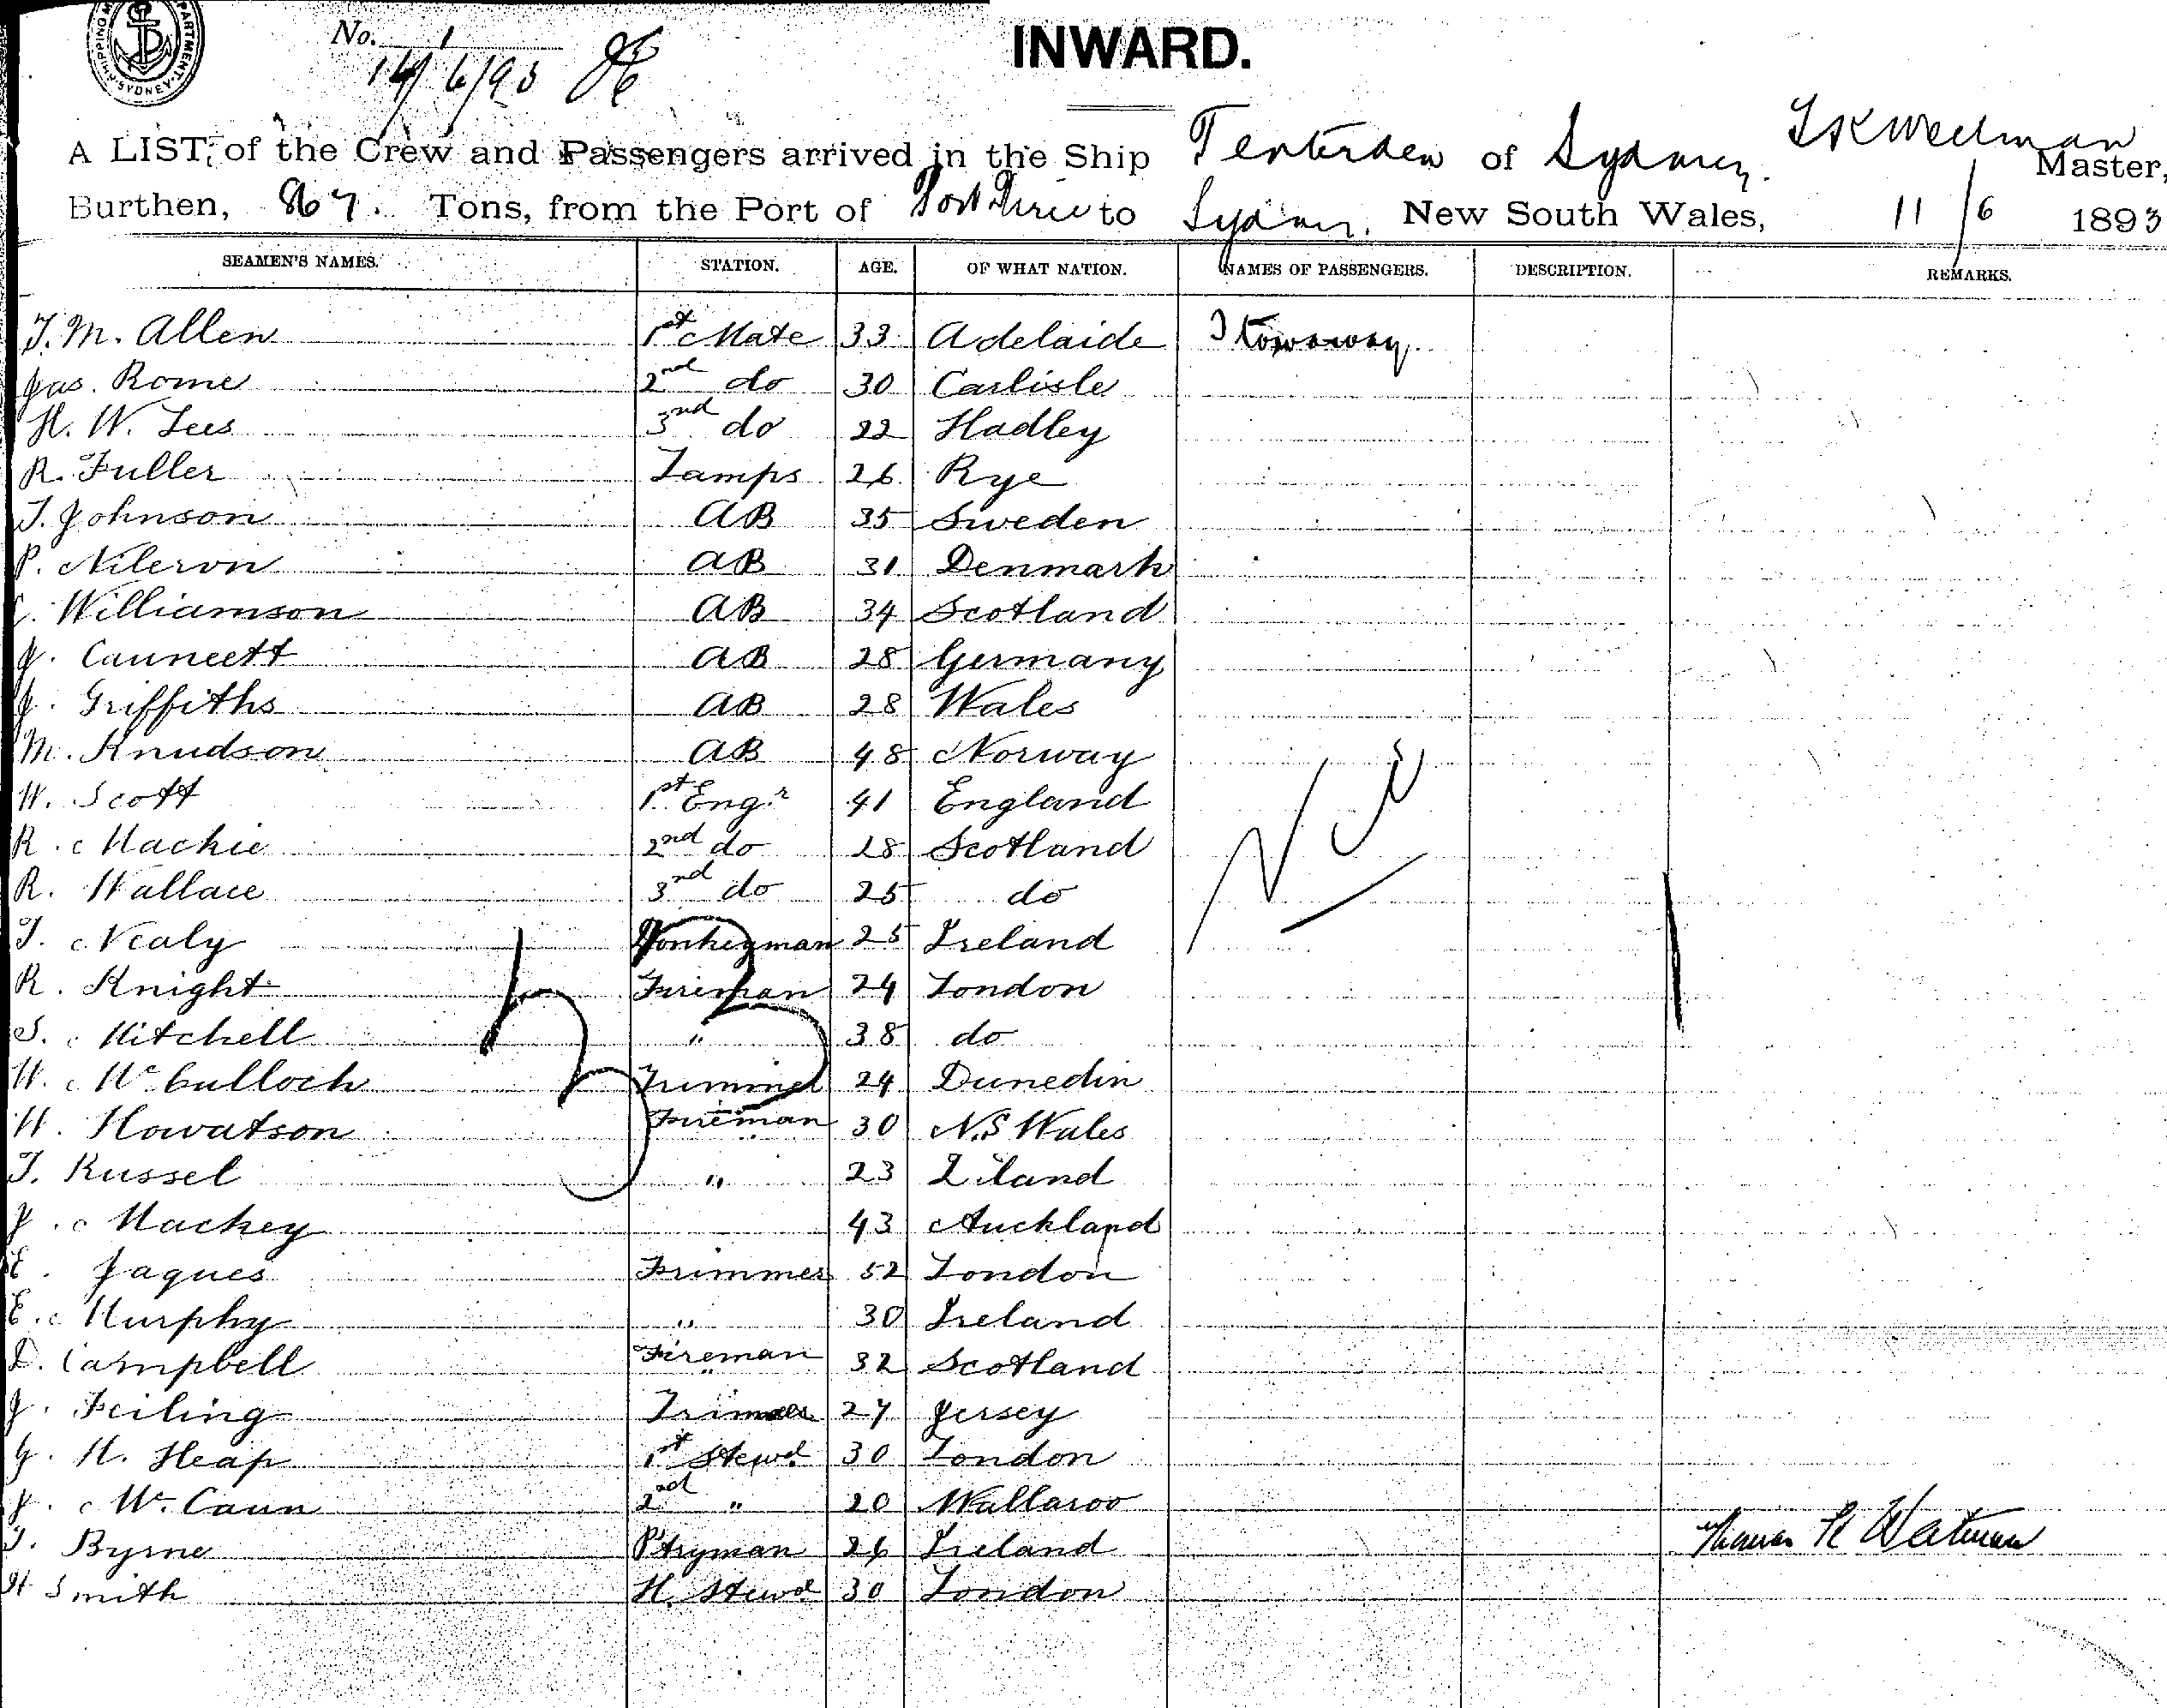 No. 1
14/6/93
INWARD.
A LIST of the Crew and Passengers arrived in the Ship Tenterden of Sydney. Master,
Burthen, 867. Tons, from the Port of Port Pirie to Sydney. New South Wales, 11/6 1893
SEAMEN'S NAMES. STATION. AGE. OF WHAT NATION. NAMES OF PASSENGERS. DESCRIPTION. REMARKS.
T. M. Allen 1st Mate 33 Adelaide
Jas. Rome 2nd do 30 Carlisle
H. W. Lees 3nd do 22 Hadley
R. Fuller Lamps 26 Rye
T. Johnson AB 35 Sweden
P. AB 31 Denmark
Williamson AB 34 Scotland
J. AB 28 Germany
J. Griffiths AB 28 Wales
M. Knudson AB 48 Norway
W. Scott 1st Engr 41 England
R. Mackie 2nd do 28 Scotland
R. Wallace 3nd do 25 do
T. Nealy Donkeyman 25 Ireland
R. Knight Fireman 24 London
S. Mitchell " 38 do
W. McCulloch Trimmer 24 Dunedin
W. Howatson Fireman 30 N.S Wales
T. Russel " 23 Z'land
J. Mackey 43 Auckland
E. Jaques Trimmer 52 London
E. Murphy " 30 Ireland
D. Campbell Fireman 32 Scotland
J. Feiling Trimmer 27 Jersey
G. H. Heap 1st Stewd 30 London
J. McCann 2nd " 20 Wallaroo
T. Byrne Ptryman 26 Ireland
H Smith M. Stewd 30 London